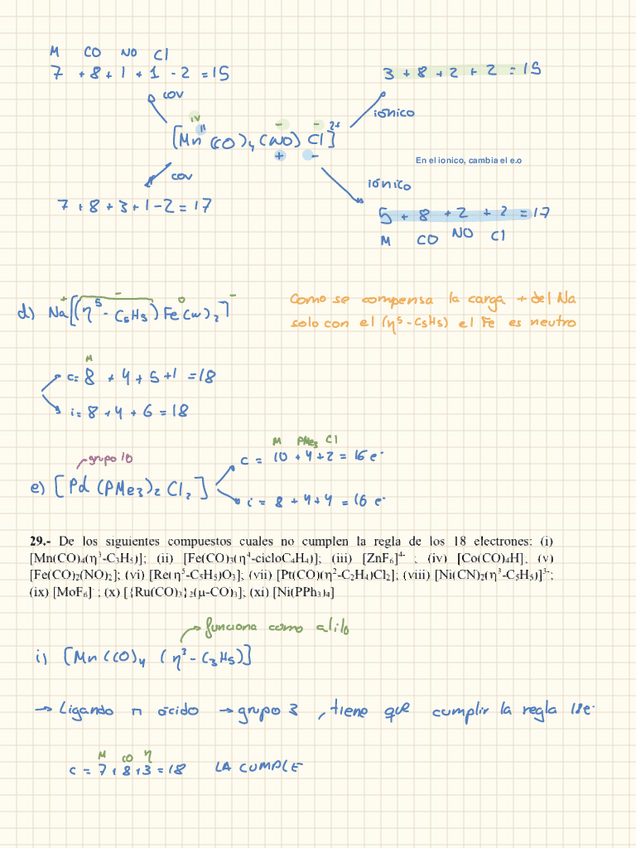 M CO NO Cl
7 + 8 + 1 + 1 - 2 = 15
3 + 8 + 2 + 2 = 15
cov
iónico
IV - -
[Mn^II (CO)4 (NO) Cl]^2+
+ -
En el ionico, cambia el e.o
cov
iónico
7 + 8 + 3 + 1 - 2 = 17
5 + 8 + 2 + 2 = 17
M CO NO Cl
+ - 0
d) Na[(η^5 - C5H5) Fe(CO)2]^-
Como se compensa la carga + del Na
solo con el (η^5 - C5H5) el Fe es neutro
M
c = 8 + 4 + 5 + 1 = 18
i = 8 + 4 + 6 = 18
grupo 10
M PMe3 Cl
c = 10 + 4 + 2 = 16 e-
e) [Pd (PMe3)2 Cl2]
i = 8 + 4 + 4 = 16 e-
29.- De los siguientes compuestos cuales no cumplen la regla de los 18 electrones: (i)
[Mn(CO)4(η3-C3H5)]; (ii) [Fe(CO)3(η4-cicloC4H4)]; (iii) [ZnF6]4- ; (iv) [Co(CO)4H], (v)
[Fe(CO)2(NO)2]; (vi) [Re(η5-C5H5)O3]; (vii) [Pt(CO)(η2-C2H4)Cl2]; (viii) [Ni(CN)2(η3-C5H5)]3-;
(ix) [MoF6]- ; (x) [{Ru(CO)3}2(μ-CO)3]; (xi) [Ni(PPh3)4]
funciona como alilo
i) [Mn (CO)4 (η^3 - C3H5)]
→ Ligando π ácido → grupo 3 , tiene que cumplir la regla 18e-
M CO η
c = 7 + 8 + 3 = 18 LA CUMPLE